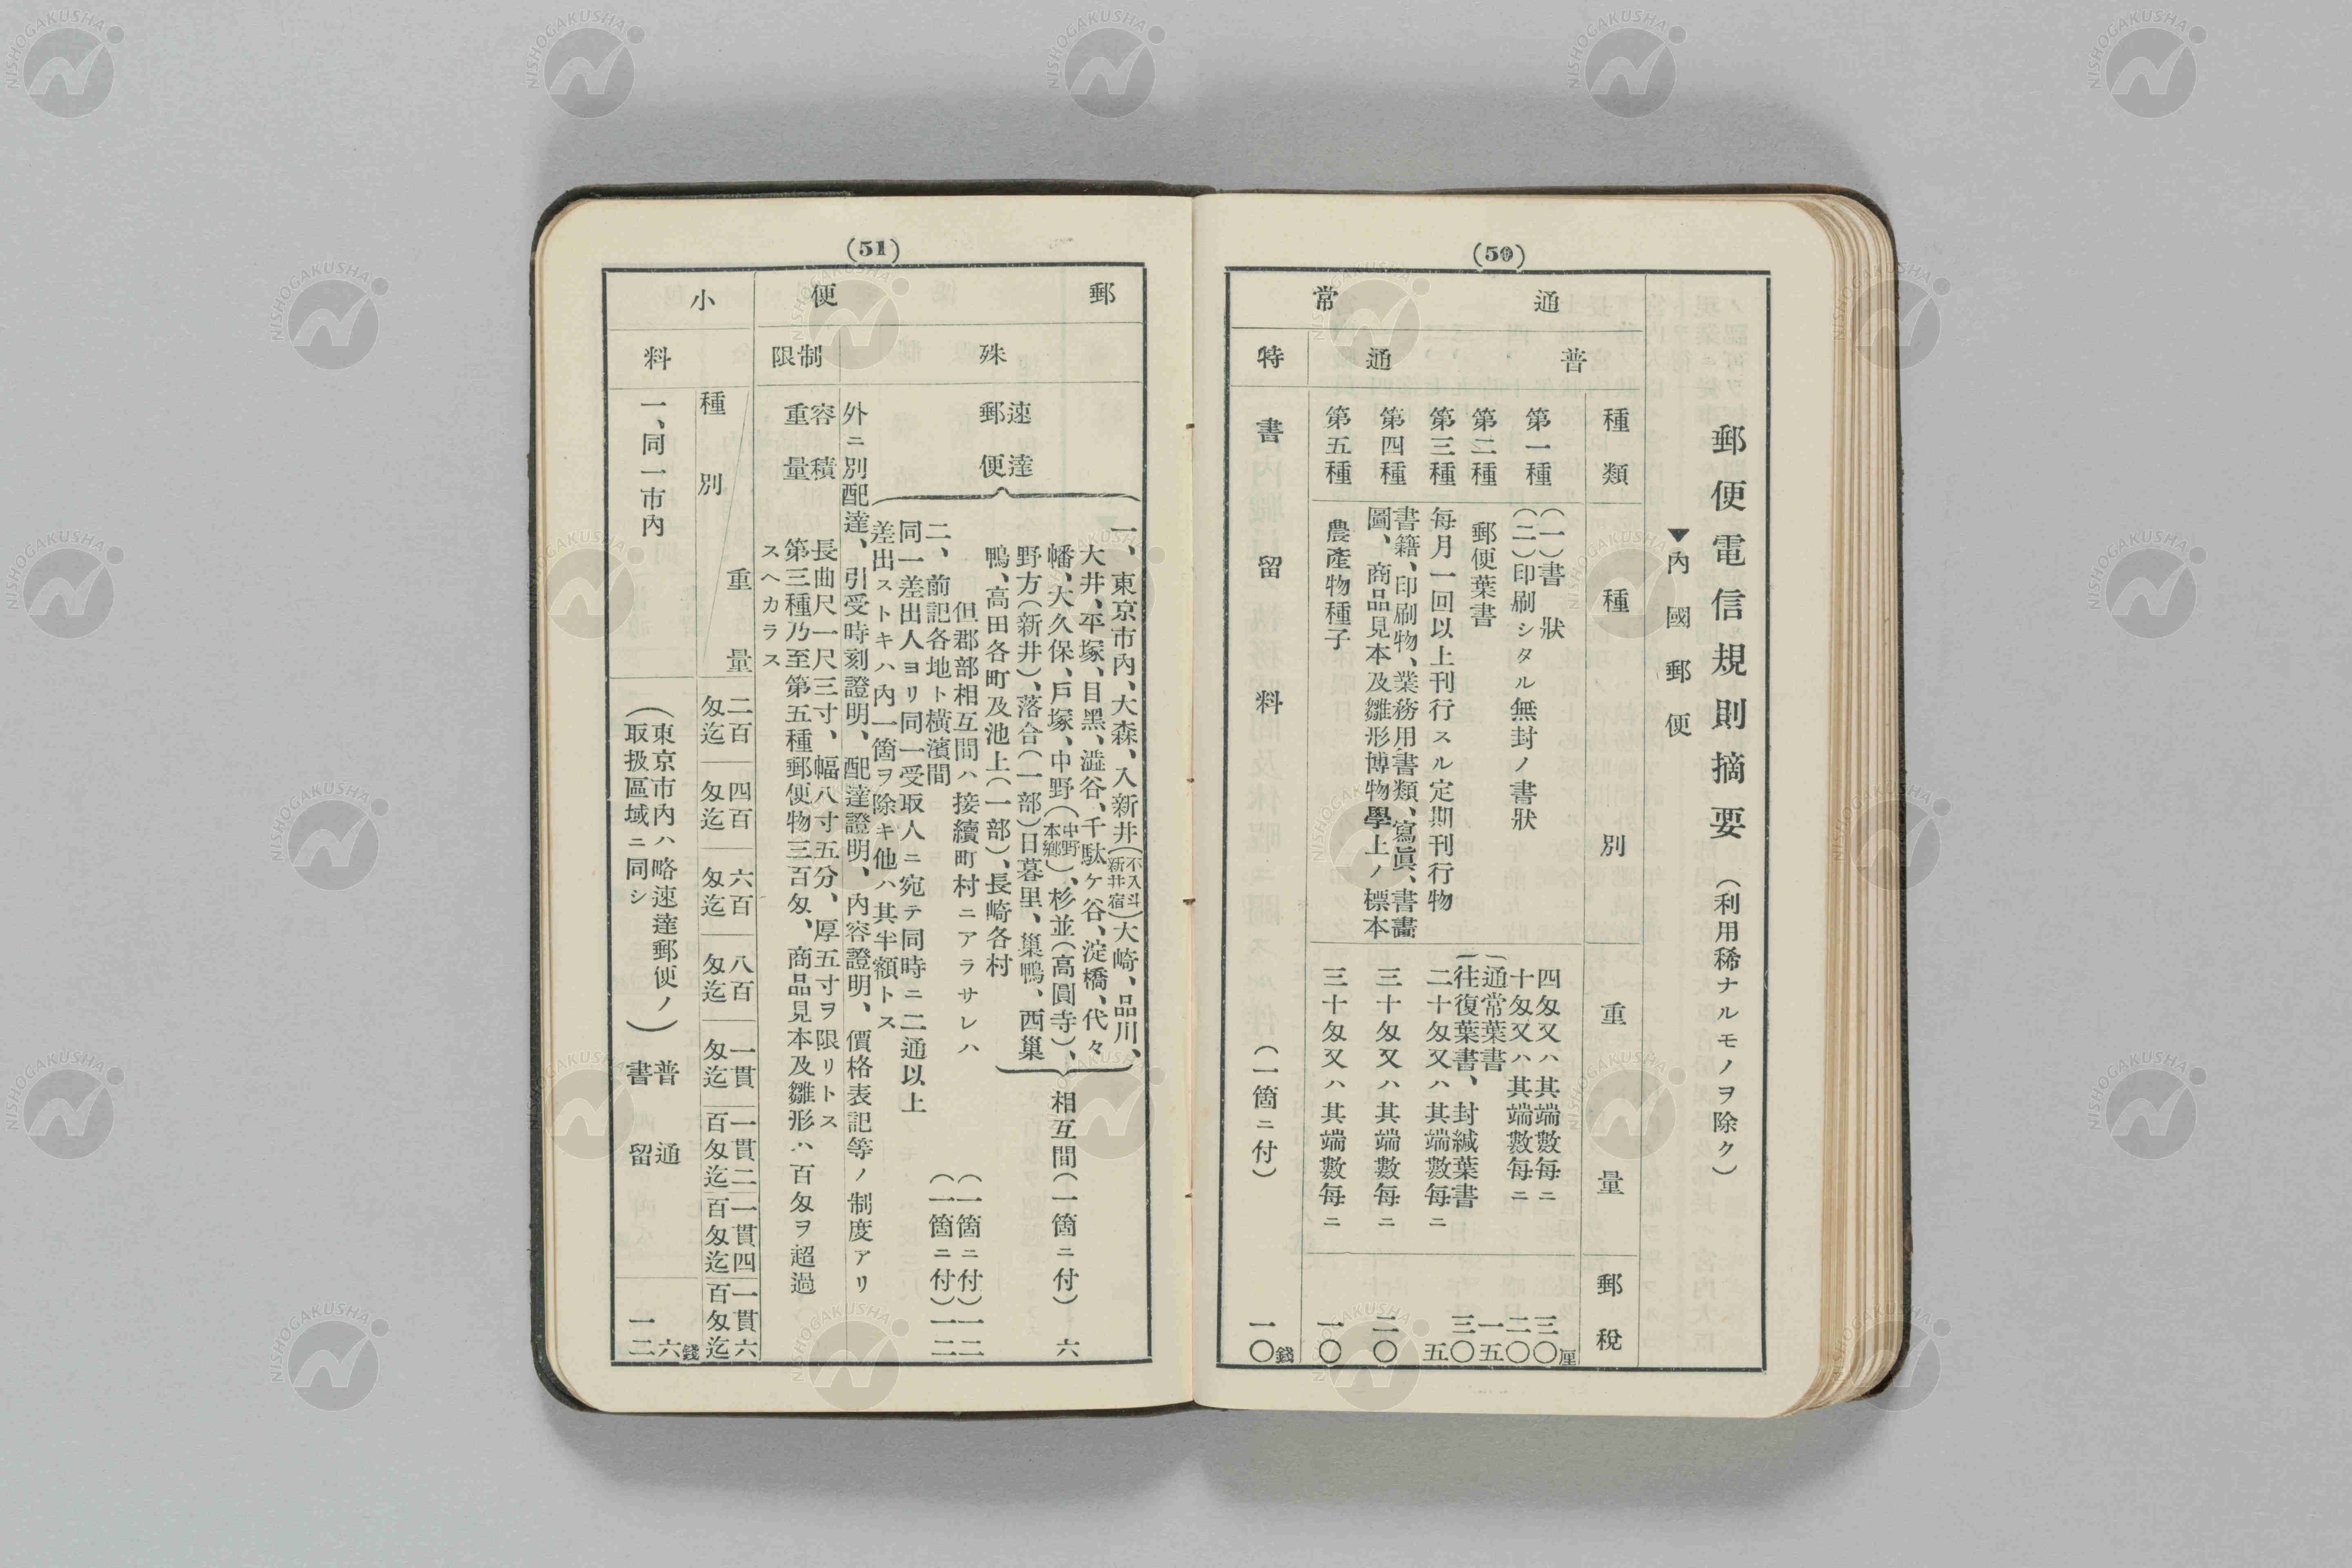 (50)
郵便電信規則摘要(利用稀ナルモノヲ除ク)
▼內國郵便
通常
普通
特
種類
種別
重量
郵稅
第一種
(一)書狀
四匁又ハ其端數每ニ
三〇厘
(二)印刷シタル無封ノ書狀
十匁又ハ其端數每ニ
二〇
第二種
郵便葉書
通常葉書
一五
往復葉書、封緘葉書
三〇
第三種
每月一回以上刊行スル定期刊行物
二十匁又ハ其端數每ニ
五
第四種
書籍、印刷物、業務用書類、寫眞、書畵
圖、商品見本及雛形博物學上ノ標本
三十匁又ハ其端數每ニ
二〇
第五種
農產物種子
三十匁又ハ其端數每ニ
一〇
書留料
(一箇ニ付)
一〇錢
(51)
郵便
殊
速達
郵便
一、東京市內、大森、入新井(不入斗
新井宿)大崎、品川、
大井、平塚、目黑、澁谷、千駄ケ谷、淀橋、代々
幡、大久保、戶塚、中野(中野
本鄕)、杉並(高圓寺)、
野方(新井)、落合(一部)日暮里、巢鴨、西巢
鴨、高田各町及池上(一部)、長崎各村
相互間(一箇ニ付)
六
但郡部相互間ハ接續町村ニアラサレハ
(一箇ニ付)一二
二、前記各地ト橫濱間
(一箇ニ付)一二
同一差出人ヨリ同一受取人ニ宛テ同時ニ二通以上
差出ストキハ內一箇ヲ除キ他ハ其半額トス
外ニ別配達、引受時刻證明、配達證明、內容證明、價格表記等ノ制度アリ
制限
容積
長曲尺一尺三寸、幅八寸五分、厚五寸ヲ限リトス
重量
第三種乃至第五種郵便物三百匁、商品見本及雛形ハ百匁ヲ超過
スヘカラス
小
料
種別
重量
二百
匁迄
四百
匁迄
六百
匁迄
八百
匁迄
一貫
匁迄
一貫二
百匁迄
一貫四
百匁迄
一貫六
百匁迄
一、同一市內
(東京市內ハ略速達郵便ノ
取扱區域ニ同シ)
普通
六錢
書留
一二